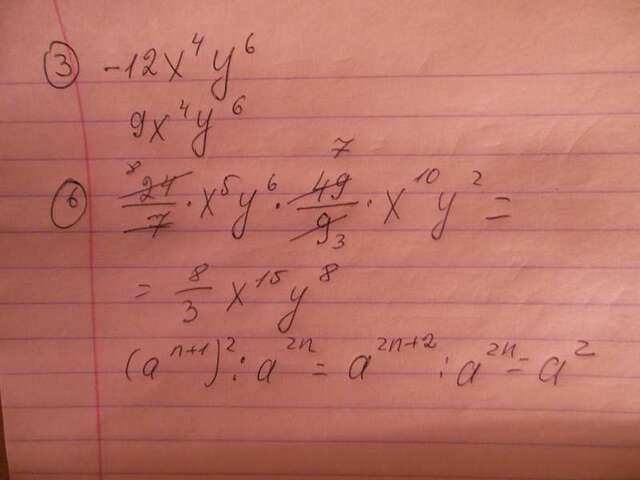 ③ -12x⁴y⁶
9x⁴y⁶
⑥ 24/7 · x⁵y⁶ · 49/9 · x¹⁰y² =
8 7 3
= 8/3 x¹⁵y⁸
(aⁿ⁺¹)² : a²ⁿ = a²ⁿ⁺² : a²ⁿ = a²